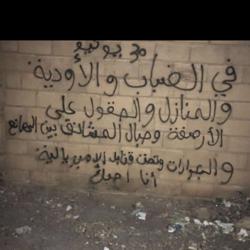 30 يونيو
في الضباب والأودية
والمنازل والحقول على
الأرصفة وحبال المشانق بين المصانع
والجرارات وتحت قنابل الأمن بالية
أنا أحبك